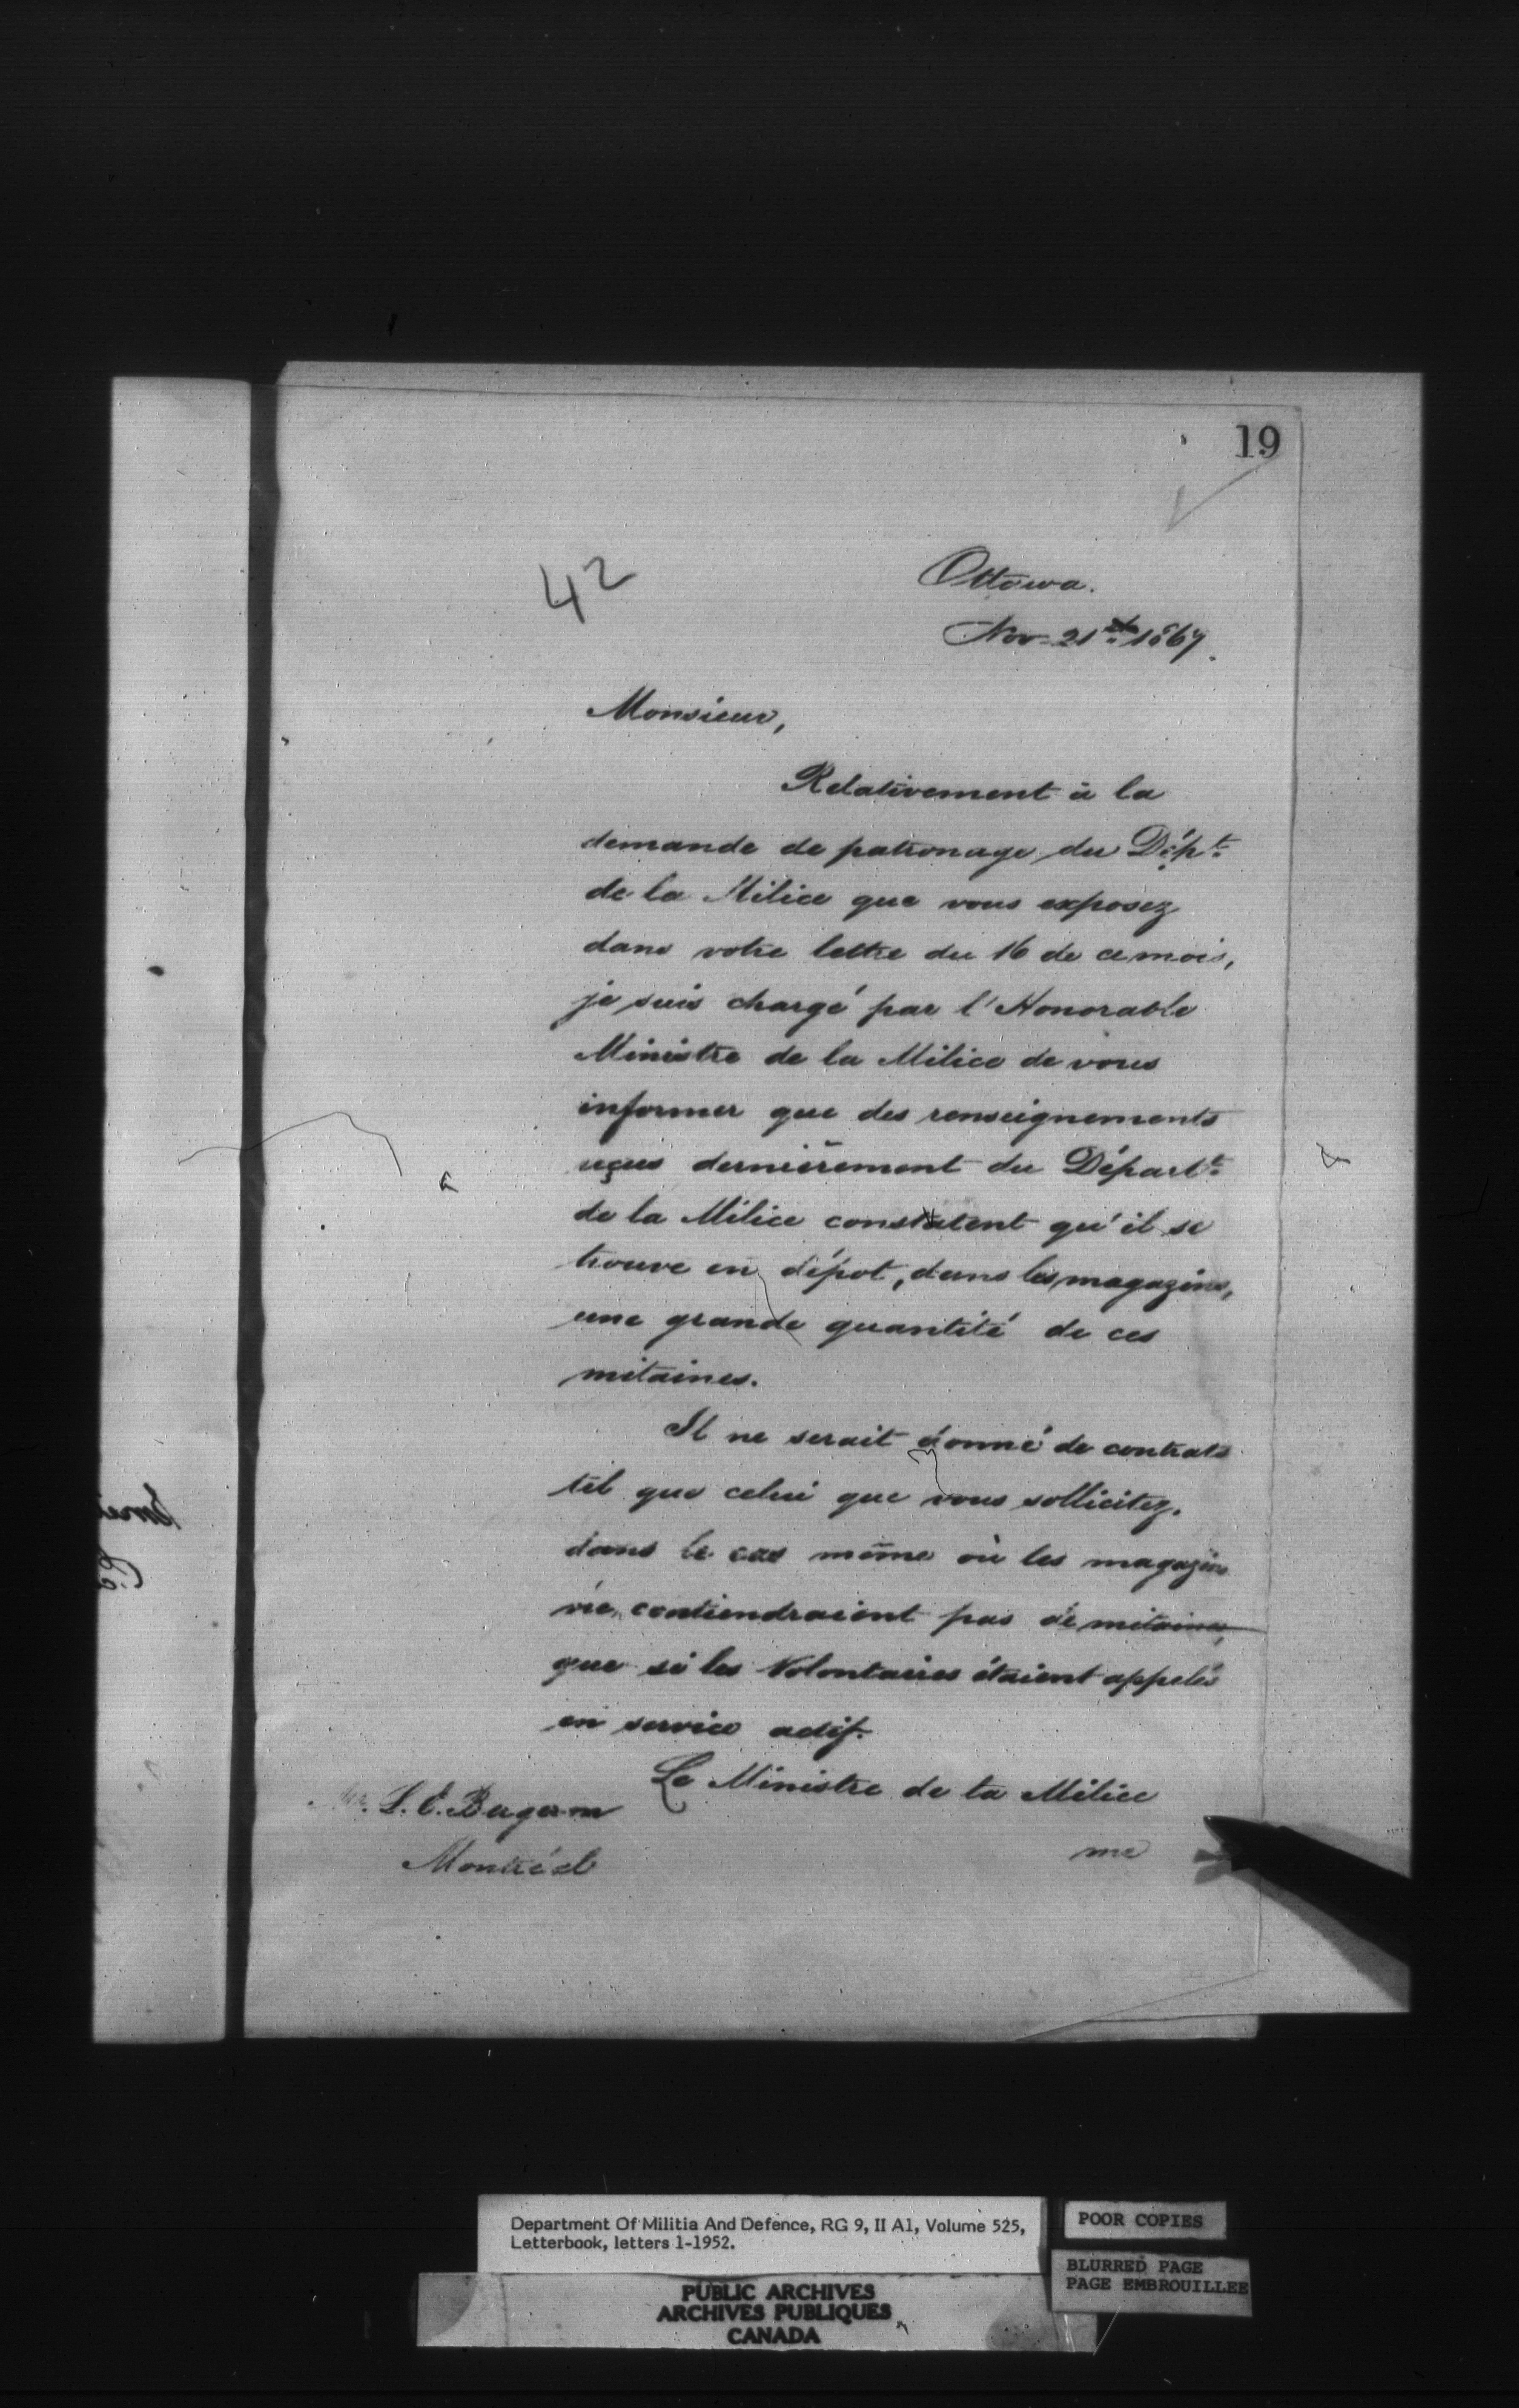 19
42
Ottawa.
Nov. 21st 1867.
Monsieur,
Relativement à la
demande de patronage du Dépt.
de la Milice que vous exposez
dans votre lettre du 16 de ce mois,
je suis chargé par l'Honorable
Ministre de la Milice de vous
informer que des renseignements
reçus dernièrement du Départt.
de la Milice constatent qu'il se
trouve en dépot, dans les magazins,
une grande quantité de ces
mitaines.
Il ne serait donné de contrats
tel que celui que vous sollicitez,
dans le cas même où les magazins
ne contiendraient pas de mitaines,
que si les Volontaires étaient appelés
en service actif.
Le Ministre de la Milice
Mr. L. E.
Montréal
Department Of Militia And Defence, RG 9, II A1, Volume 525,
Letterbook, letters 1-1952.
POOR COPIES
BLURRED PAGE
PAGE EMBROUILLEE
PUBLIC ARCHIVES
ARCHIVES PUBLIQUES
CANADA